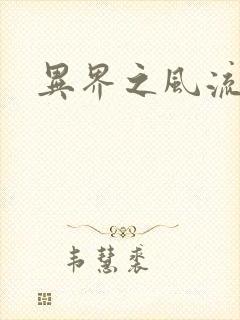 異界之風流
韦慧裘